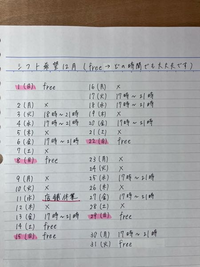 シフト希望12月 (free→どの時間でも大丈夫です)
1(日) free
2(月) ×
3(火) 18時〜21時
4(水) 17時〜21時
5(木) ×
6(金) 17時〜21時
7(土) ×
8(日) free
9(月) ×
10(火) ×
11(水) 店舗休業
12(木) ×
13(金) 17時〜21時
14(土) free
15(日) free
16(月) ×
17(火) 17時〜21時
18(水) 17時〜21時
19(木) ×
20(金) 17時〜21時
21(土) ×
22(日) free
23(月) ×
24(火) ×
25(水) 17時〜21時
26(木) ×
27(金) 17時〜21時
28(土) ×
29(日) free
30(月) 17時〜21時
31(火) free